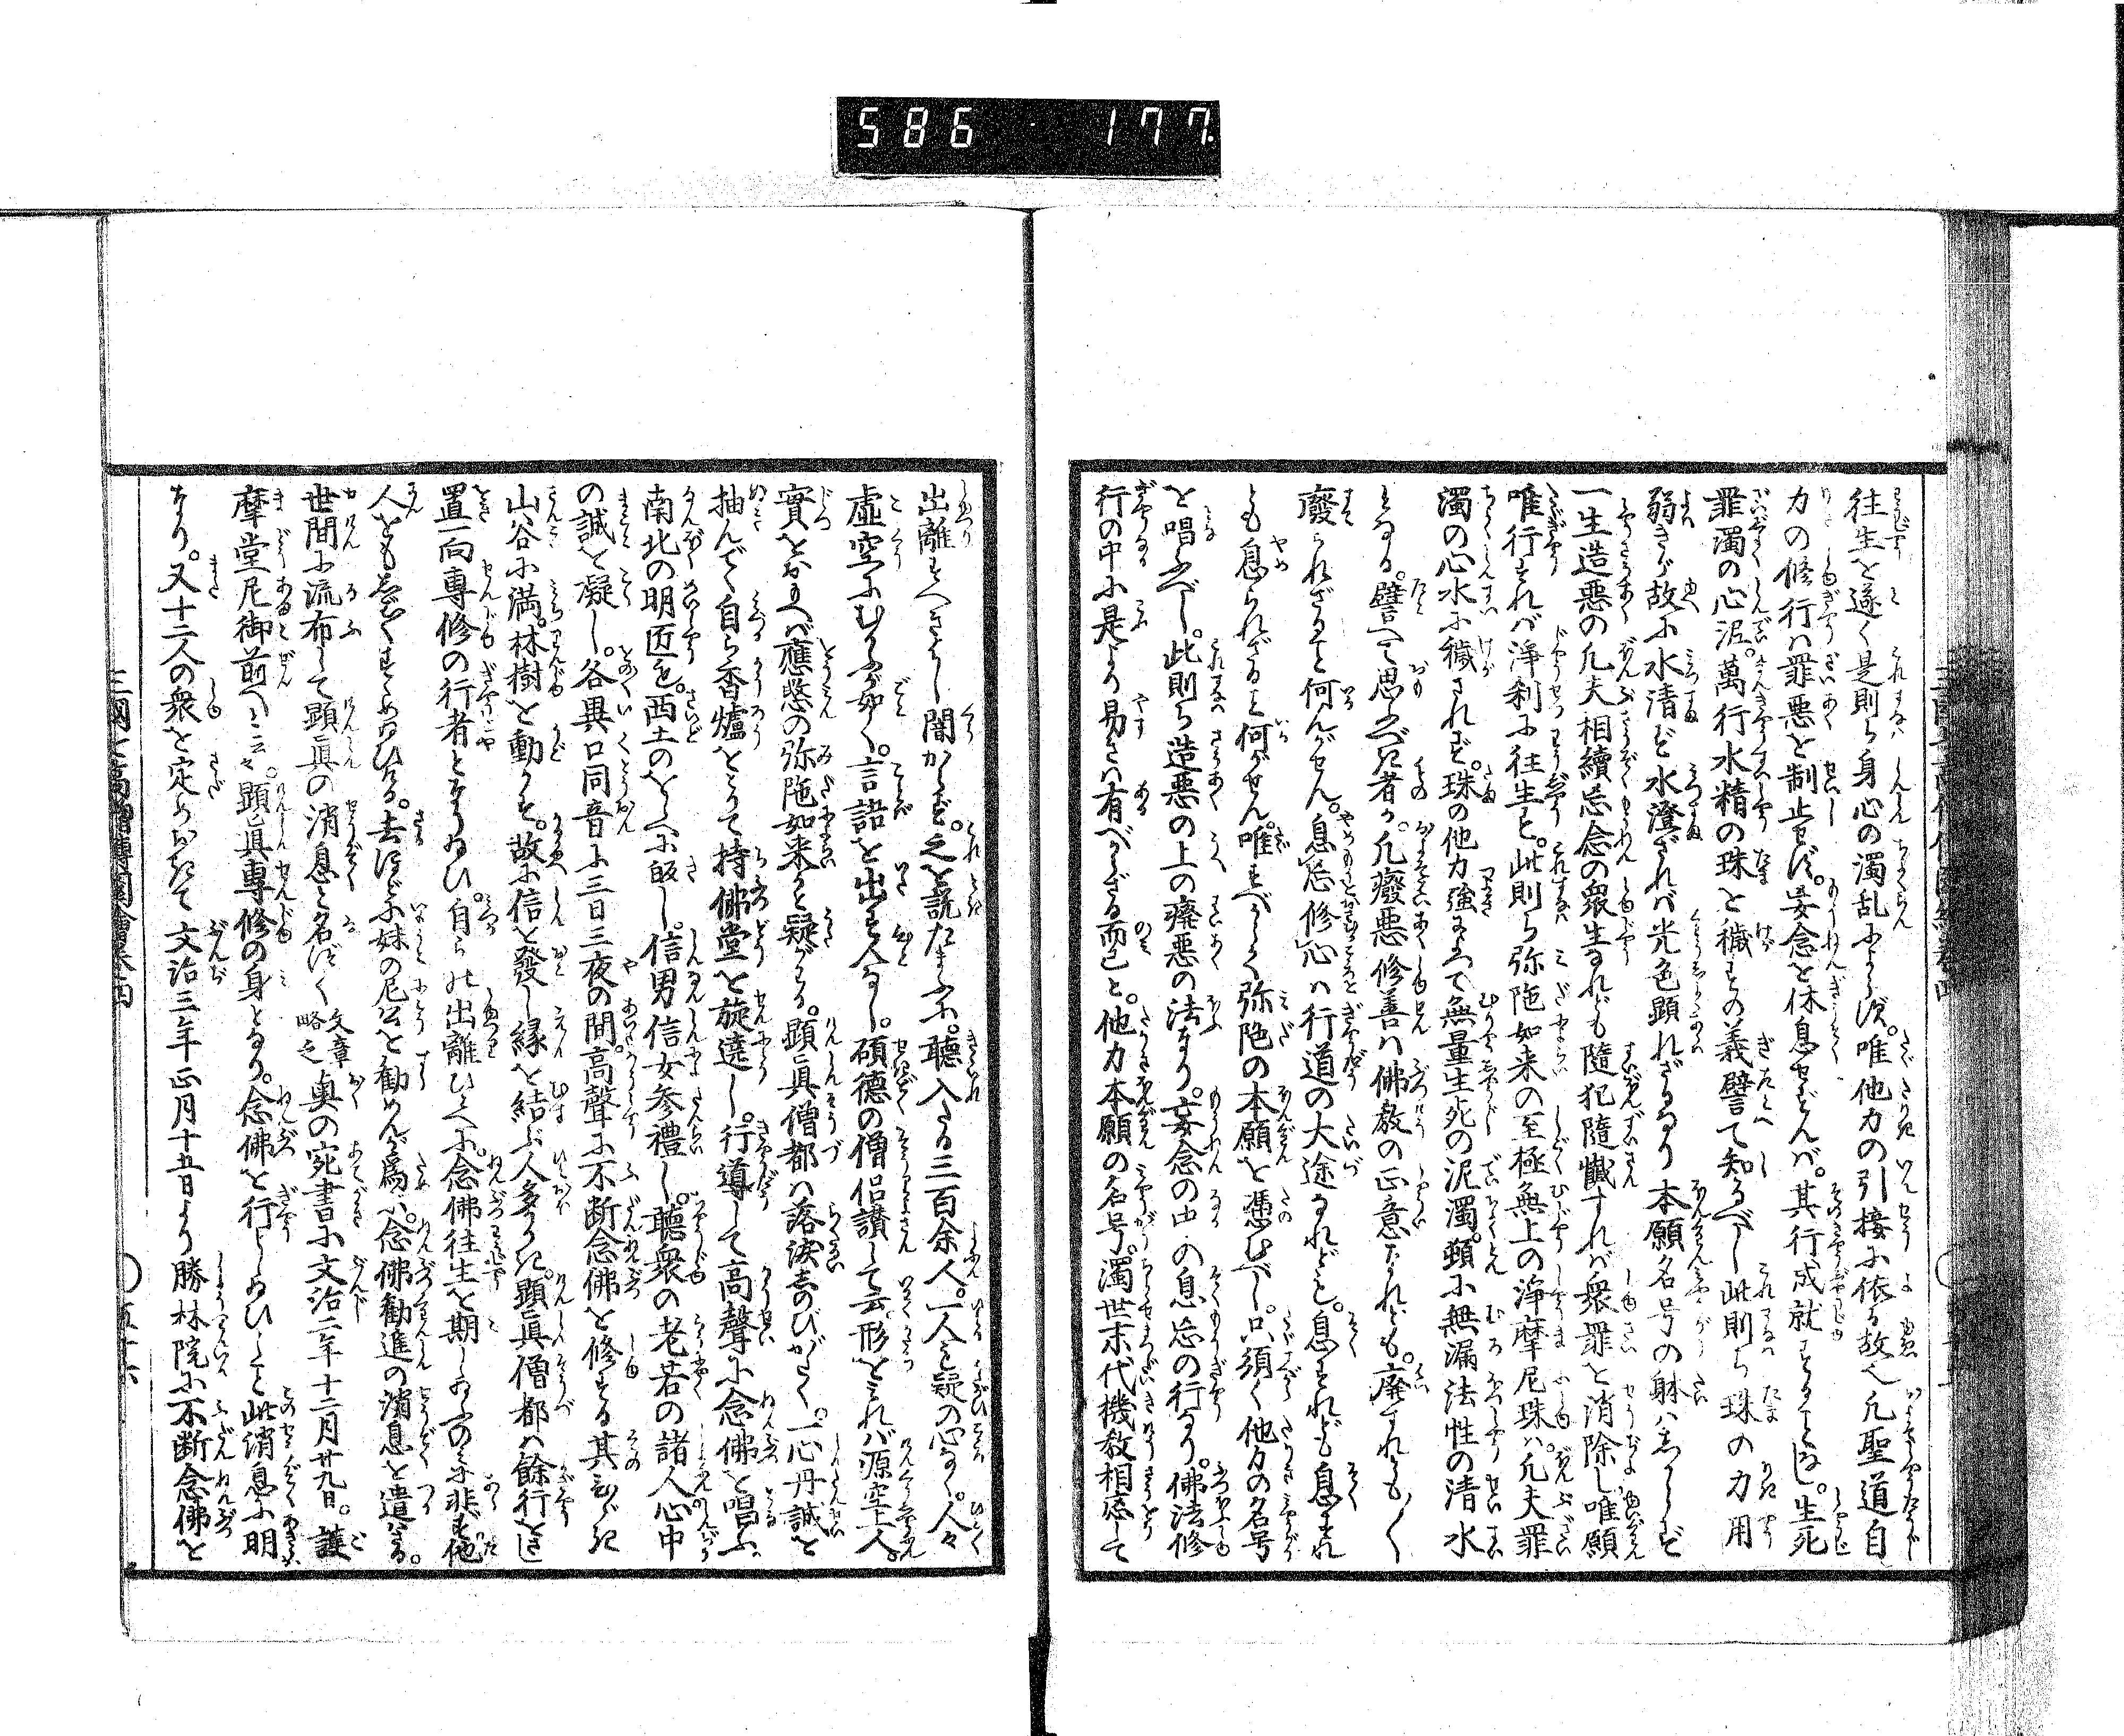 586 177.
往生を遂ぐ是則ち身心の濁乱によらず。唯他力の引接に依る故也凡聖道自
力の修行は罪悪を制止せず。妄念を休息せざれば。其行成就することなし。生死
罪濁の心泥。萬行水精の珠を穢すの義譬て知るべし此則ち珠の力用
弱きが故に水清ず水澄ざれば光色顕れざるなり本願名号の躰はしからず
一生造悪の凡夫相續妄念の衆生なれども隨犯隨懺すれば衆罪を消除し唯願
唯行すれば浄刹に往生と。此則ち弥陀如来の至極無上の浄摩尼珠は。凡夫罪
濁の心水に穢されず。珠の他力強によつて無量生死の泥濁。頓に無漏法性の清水
となる。譬へて思ふべき者か。凡癈悪修善は佛教の正意なれども。廃すれども〱
廢られざること何んがせん。息妄修心は行道の大途なれども。息すれども息すれ
とも息られざるを何がせん。唯すべからく弥陀の本願を憑むべし。只須く他力の名号
を唱ふべし。此則ち造悪の上の癈悪の法なり。妄念の中の息妄の行なり。佛法修
行の中に是より易きは有べからざる而已と。他力本願の名号。濁世末代機教相應して
出離すべきよし闇からず。之を説たまふに。聴入たる三百余人。一人も疑の心なく。人々
虚空にむかふが如く。言語を出す人なし。碩徳の僧侶讃して云形をみれば源空上人。
實をおもへば應愍の弥陀如来かと疑がはる。顕真僧都は落涙しのびがたく。一心丹誠を
抽んで自ら香爐をとりて持佛堂を旋遶し。行導して高聲に念佛を唱ふ。
南北の明匠を。西土のをしへに皈し。信男信女参禮し。聴衆の老若の諸人心中
の誠を凝し。各異口同音に三日三夜の間。高聲に不断念佛を修する其ひびき
山谷に満。林樹を動かす。故に信を發し縁を結ぶ人多かりき。顕真僧都は餘行をさし
置一向専修の行者となり給ひ。自らの出離ひとへに。念佛往生を期し給ふのみに非ず他
人をも普くすすめ給ひける。去ほどに妹の尼公を勧めんが爲に。念佛勧進の消息を遣はさる。
世間に流布して顕真の消息と名づく文章略之奥の宛書に文治二年十二月廿九日。護
摩堂尼御前へと云々。顕真専修の身となり。念佛を行じ給ひしこと此消息に明
なり。又十二人の衆を定めおきて文治三年正月十五日より勝林院に不断念佛を
三國七高僧傳圖繪巻四